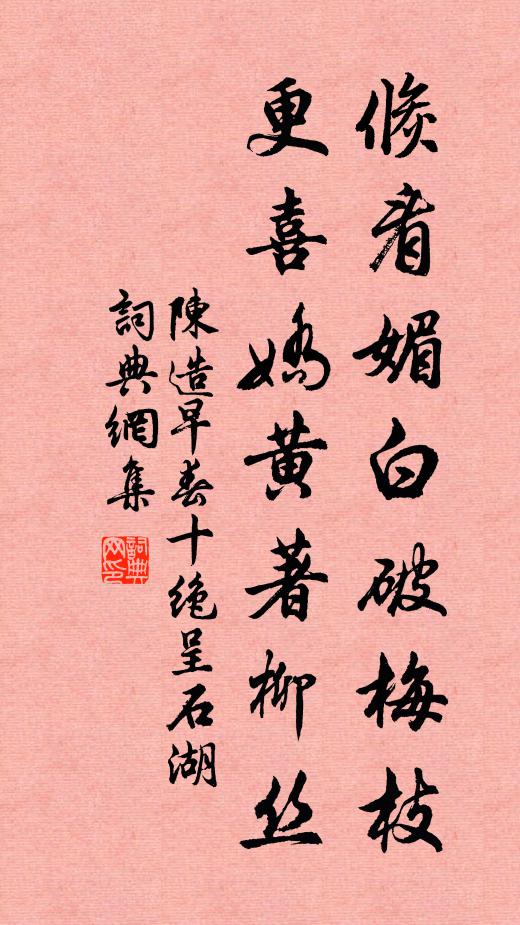 倏看媚白破梅枝
更喜嬌黄著柳丝
陳造早春十绝呈石湖
詞典網集
詞典网印